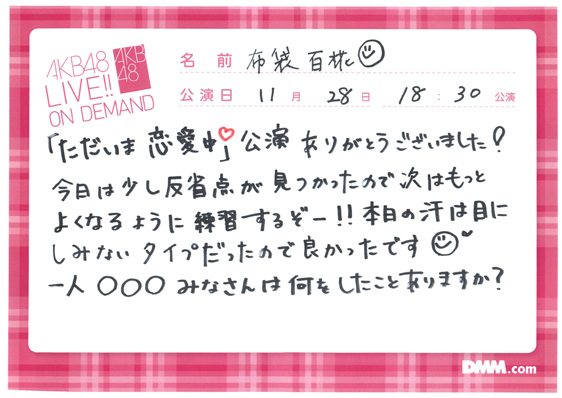 AKB48
LIVE!!
ON DEMAND
AKB
48
名前 布袋百椛
公演日 11月 28日 18:30 公演
「ただいま 恋愛中」公演 ありがとうございました!
今日は少し反省点が見つかったので次はもっと
よくなるように練習するぞー!!本日の汗は目に
しみないタイプだったので良かったです
一人 〇〇〇 みなさんは何をしたことありますか?
DMM.com